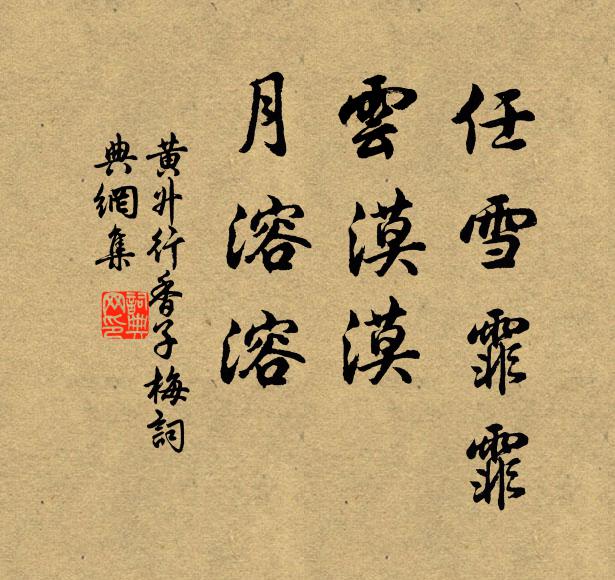 任雪霏霏
雲漠漠
月溶溶
黃升行香子梅詞
典網集
詞典網印